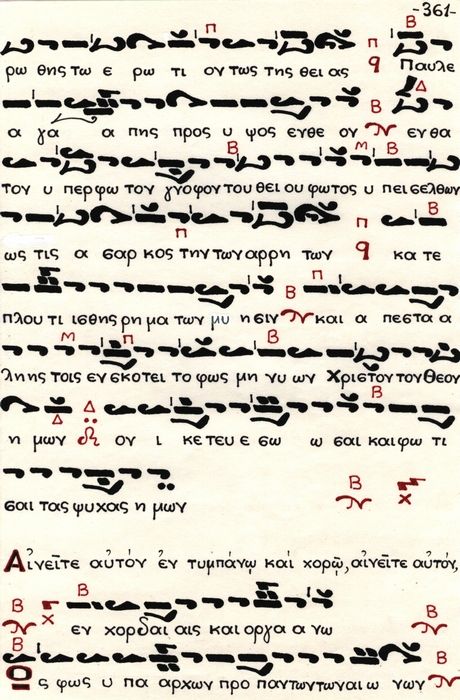 -361-
ρω θης τω ε ρω τι ον τως της θει ας Π q Παυλε
α γα α πης προς υ ψος ενθε ον ενθα
τον υ περφω τον γνοφον του θει ου φωτος υ πεισελθων
ως τις α σαρ κος την των αρρη των Π q κα τε
πλου τι σθης ρη μα των μυ η σιν και α πεστα α
λης τοις εν σκοτει το φως μη νυ ων Χριστον τον Θεον
η μων ον ι κε τευ ε σω ω σαι και φω τι
σαι τας ψυχας η μων
Αἰνεῖτε αὐτόν ἐν τυμπάνῳ καὶ χορῷ, αἰνεῖτε αὐτόν,
εν χορδαι αις και οργα α νω
Ο ς φως υ πα αρχων προ παντων των αι ω νων